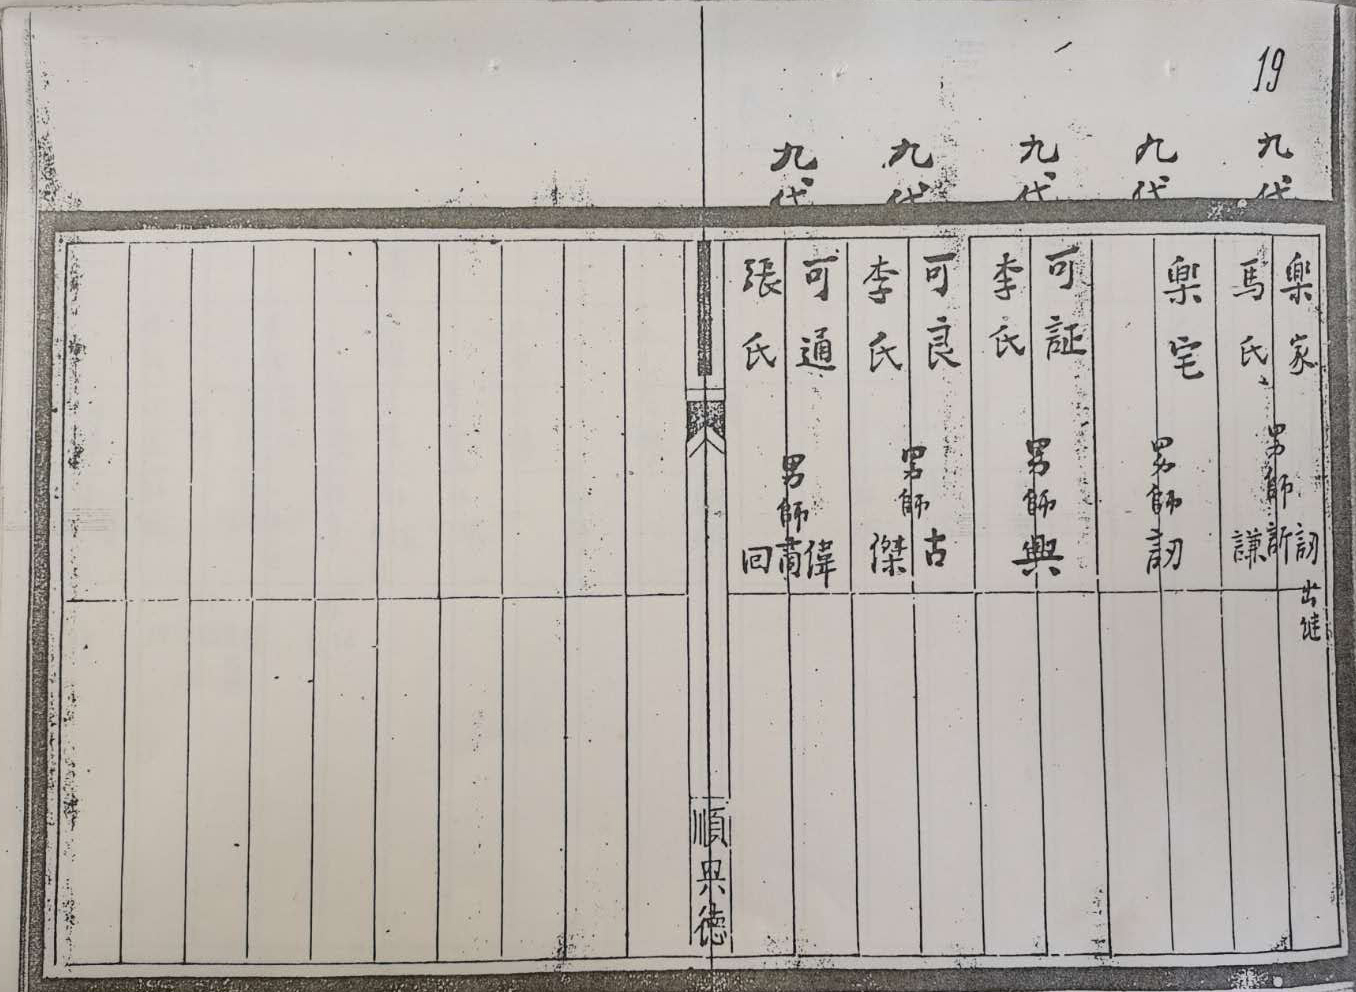 19
九代
楽家
馬氏
男師
訒出継
訢
謙
九代
楽宅
男師訒
九代
可証
李氏
男師興
九代
可良
李氏
男師
古
傑
九代
可通
張氏
男師
偉
肅
回
順興德